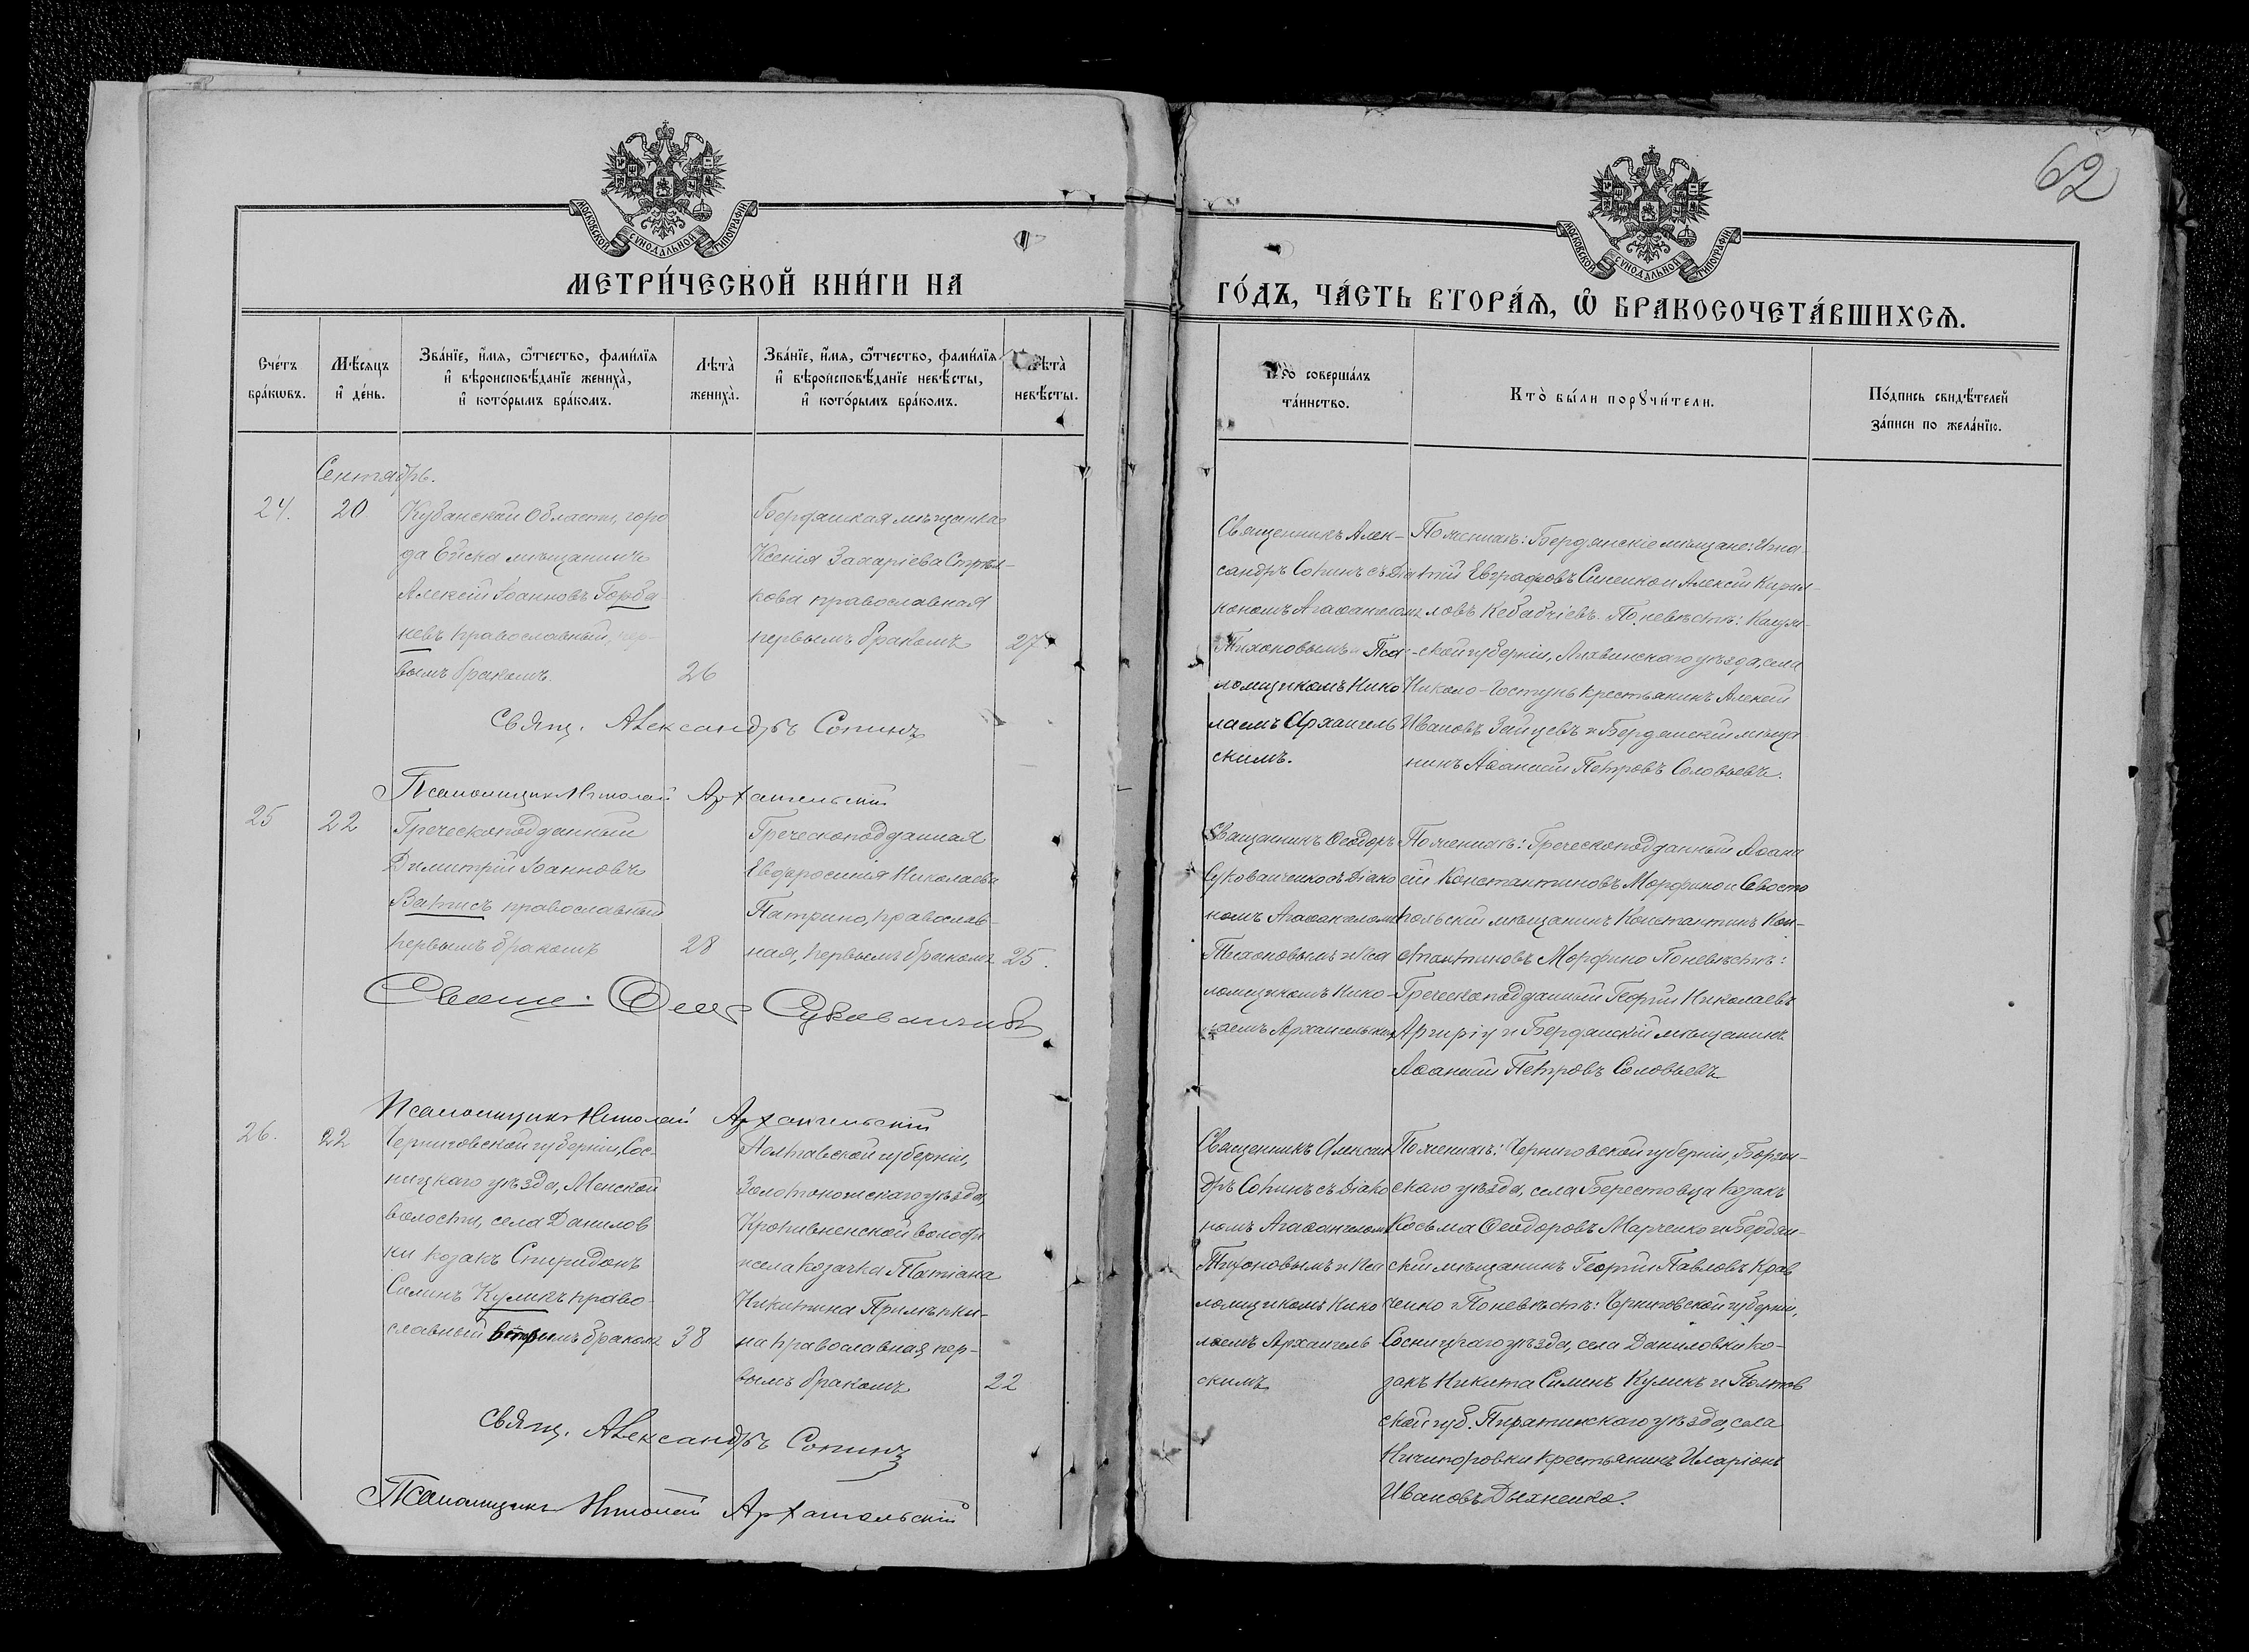 62
МОСКОВСКОЙ СѴНОДАЛЬНОЙ ТИПОГРАФІИ
МОСКОВСКОЙ СѴНОДАЛЬНОЙ ТИПОГРАФІИ
МЕТРИ́ЧЕСКОЙ КНИ́ГИ НА
ГО́ДЪ, ЧА́СТЬ ВТОРА́Ѧ, Ѽ БРАКОСОЧЕТА́ВШИХСѦ.
Сче́тъ
бра́кѡвъ.
Мѣ́сѧцъ
и҆ де́нь.
Зва́нїе, и҆́мѧ, ѻ҆́тчество, фами́лїѧ
и҆ вѣроисповѣ́данїе жениха̀,
и҆ кото́рымъ бра́комъ.
Лѣта̀
жениха̀.
Зва́нїе, и҆́мѧ, ѻ҆́тчество, фами́лїѧ
и҆ вѣроисповѣ́данїе невѣ́сты,
и҆ кото́рымъ бра́комъ.
Лѣта̀
невѣ́сты.
Кто̀ соверша́лъ
та́инство.
Кто̀ бы́ли порꙋчи́тели.
По́дпись свидѣ́телей
за́писи по жела́нїю.
Сентябрь.
24.
20
Кубанской Области, горо
да Ейска мѣщанинъ
Алексій Іоанновъ Горба-
невъ православный, пер-
вымъ бракомъ.
26
Бердянская мѣщанка
Ксенія Захаріева Стрѣл-
кова православная
первымъ бракомъ
27
Священникъ Алек-
сандръ Сопинъ съ Діа
кономъ Агаѳангеломъ
Тихоновымъ и Пса-
ломщикомъ Нико
лаемъ Архангель
скимъ.
По женихѣ: Бердянскіе мѣщане: Игна-
тій Евграфовъ Синенко и Алексій Кирил-
ловъ Кебабчіевъ. По невѣстѣ: Калуж-
ской губерніи, Лихвинскаго уѣзда, села
Николо-Гостунь крестьянинъ Алексій
Ивановъ Зайцевъ и Бердянскій мѣща
нинъ Аѳанасій Петровъ Соловьевъ.
Свящ. Александръ Сопинъ
Псаломщикъ Николай Архангельскій
25
22
Греческоподданный
Димитрій Іоанновъ
Ватисъ православный
первымъ бракомъ
28
Греческоподданная
Евфросинія Николаева
Патрино, православ-
ная, первымъ бракомъ
25.
Священникъ Ѳеодоръ
Сукованченко съ Діако
номъ Агаѳангеломъ
Тихоновымъ и Пса
ломщикомъ Нико-
лаемъ Архангельскимъ
По женихѣ: Греческоподданный Аѳана
сій Константиновъ Морфино и Севасто
польскій мѣщанинъ Константинъ Кон-
стантиновъ Морфино По невѣстѣ:
Греческоподданный Георгій Николаевъ
Аргиріу и Бердянскій мѣщанинъ
Аѳанасій Петровъ Соловьевъ
Свящ. Ѳеод Сукованченко
Псаломщикъ Николай Архангельскій
26.
22
Черниговской губерніи, Сос-
ницкаго уѣзда, Менской
волости, села Данилов
ки козакъ Спиридонъ
Силинъ Куликъ право-
славный вторымъ бракомъ
38
Полтавской губерніи,
Золотоношскаго уѣзда,
Кропивненской волости
и села козачка Татіана
Никитина
на православная, пер-
вымъ бракомъ
22
Священникъ Алексан
дръ Сопинъ съ Діако
номъ Агаѳангеломъ
Тихоновымъ и Пса
ломщикомъ Нико
лаемъ Архангель
скимъ
По женихѣ: Черниговской губерніи, Борзен-
скаго уѣзда, села Берестовца козакъ
Косьма Ѳеодоровъ Марченко и Бердян-
скій мѣщанинъ Георгій Павловъ Крав
ченко По невѣстѣ: Черниговской губерніи,
Сосницкаго уѣзда, села Даниловки ко-
закъ Никита Силинъ Куликъ и Полтав
ской губ. Пирятинскаго уѣзда, села
Ничипоровки крестьянинъ Иларіонъ
Ивановъ Дыхненко.
Свящ. Александръ Сопинъ
Псаломщикъ Николай Архангельскій